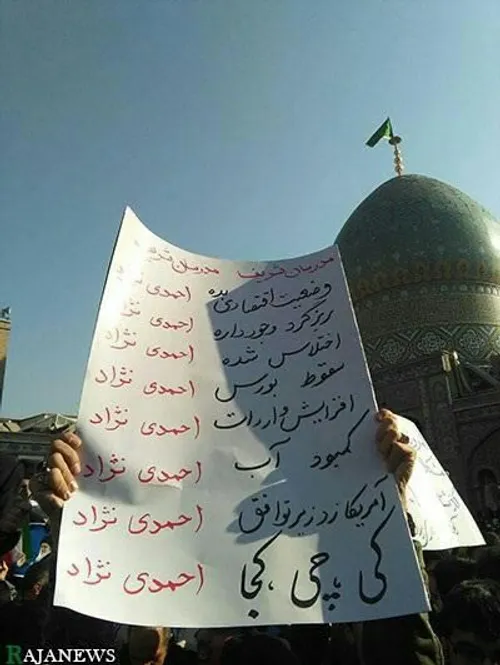 مدرسان شریف مدرسان شریف
وضعیت اقتصادی بده احمدی نژاد
ریزگرد وجود داره احمدی نژاد
اختلاس شده احمدی نژاد
سقوط بورس احمدی نژاد
افزایش واردات احمدی نژاد
کمبود آب احمدی نژاد
آمریکا زد زیر توافق احمدی نژاد
کی، چی، کجا احمدی نژاد
RAJANEWS